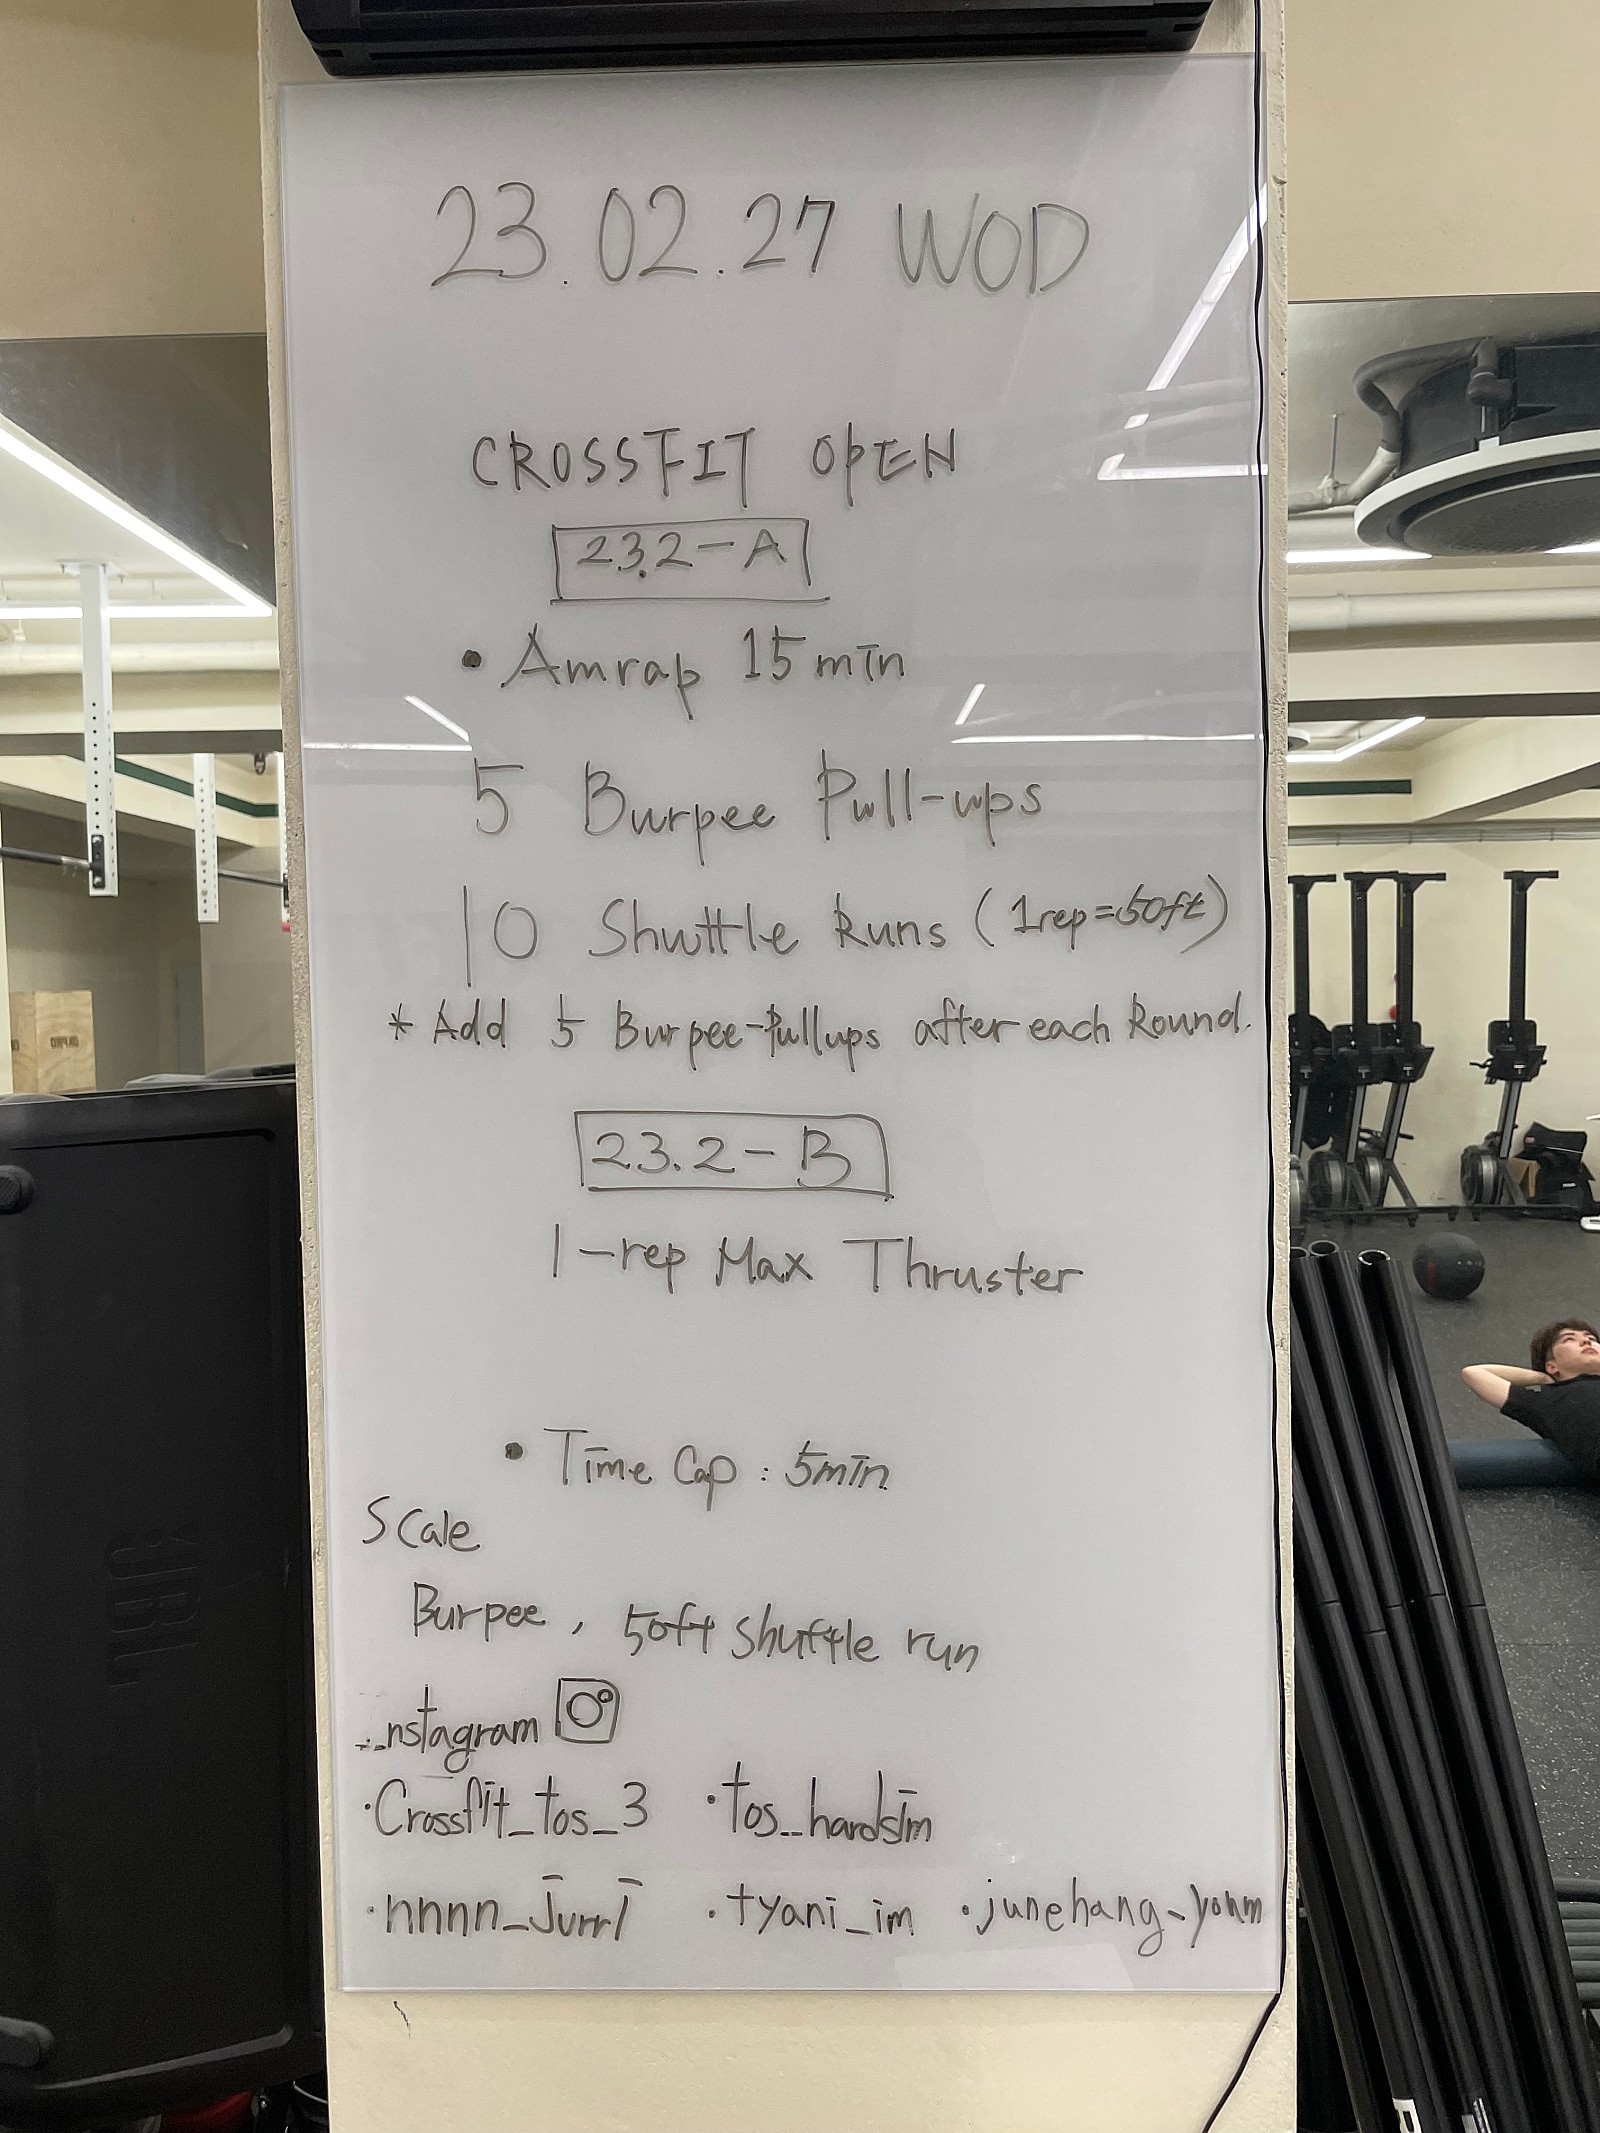 23.02.27 WOD
CROSSFIT OPEN
23.2-A
• Amrap 15min
5 Burpee Pull-ups
10 Shuttle Runs (1rep=50ft)
* Add 5 Burpee-Pullups after each Round.
23.2-B
1-rep Max Thruster
• Time Cap : 5min
Scale
Burpee, 50ft shuttle run
nstagram
·Crossfit_tos_3 ·tos_hardsim
·nnnn_Jurri ·tyani_im ·junehang_yohm
JBL